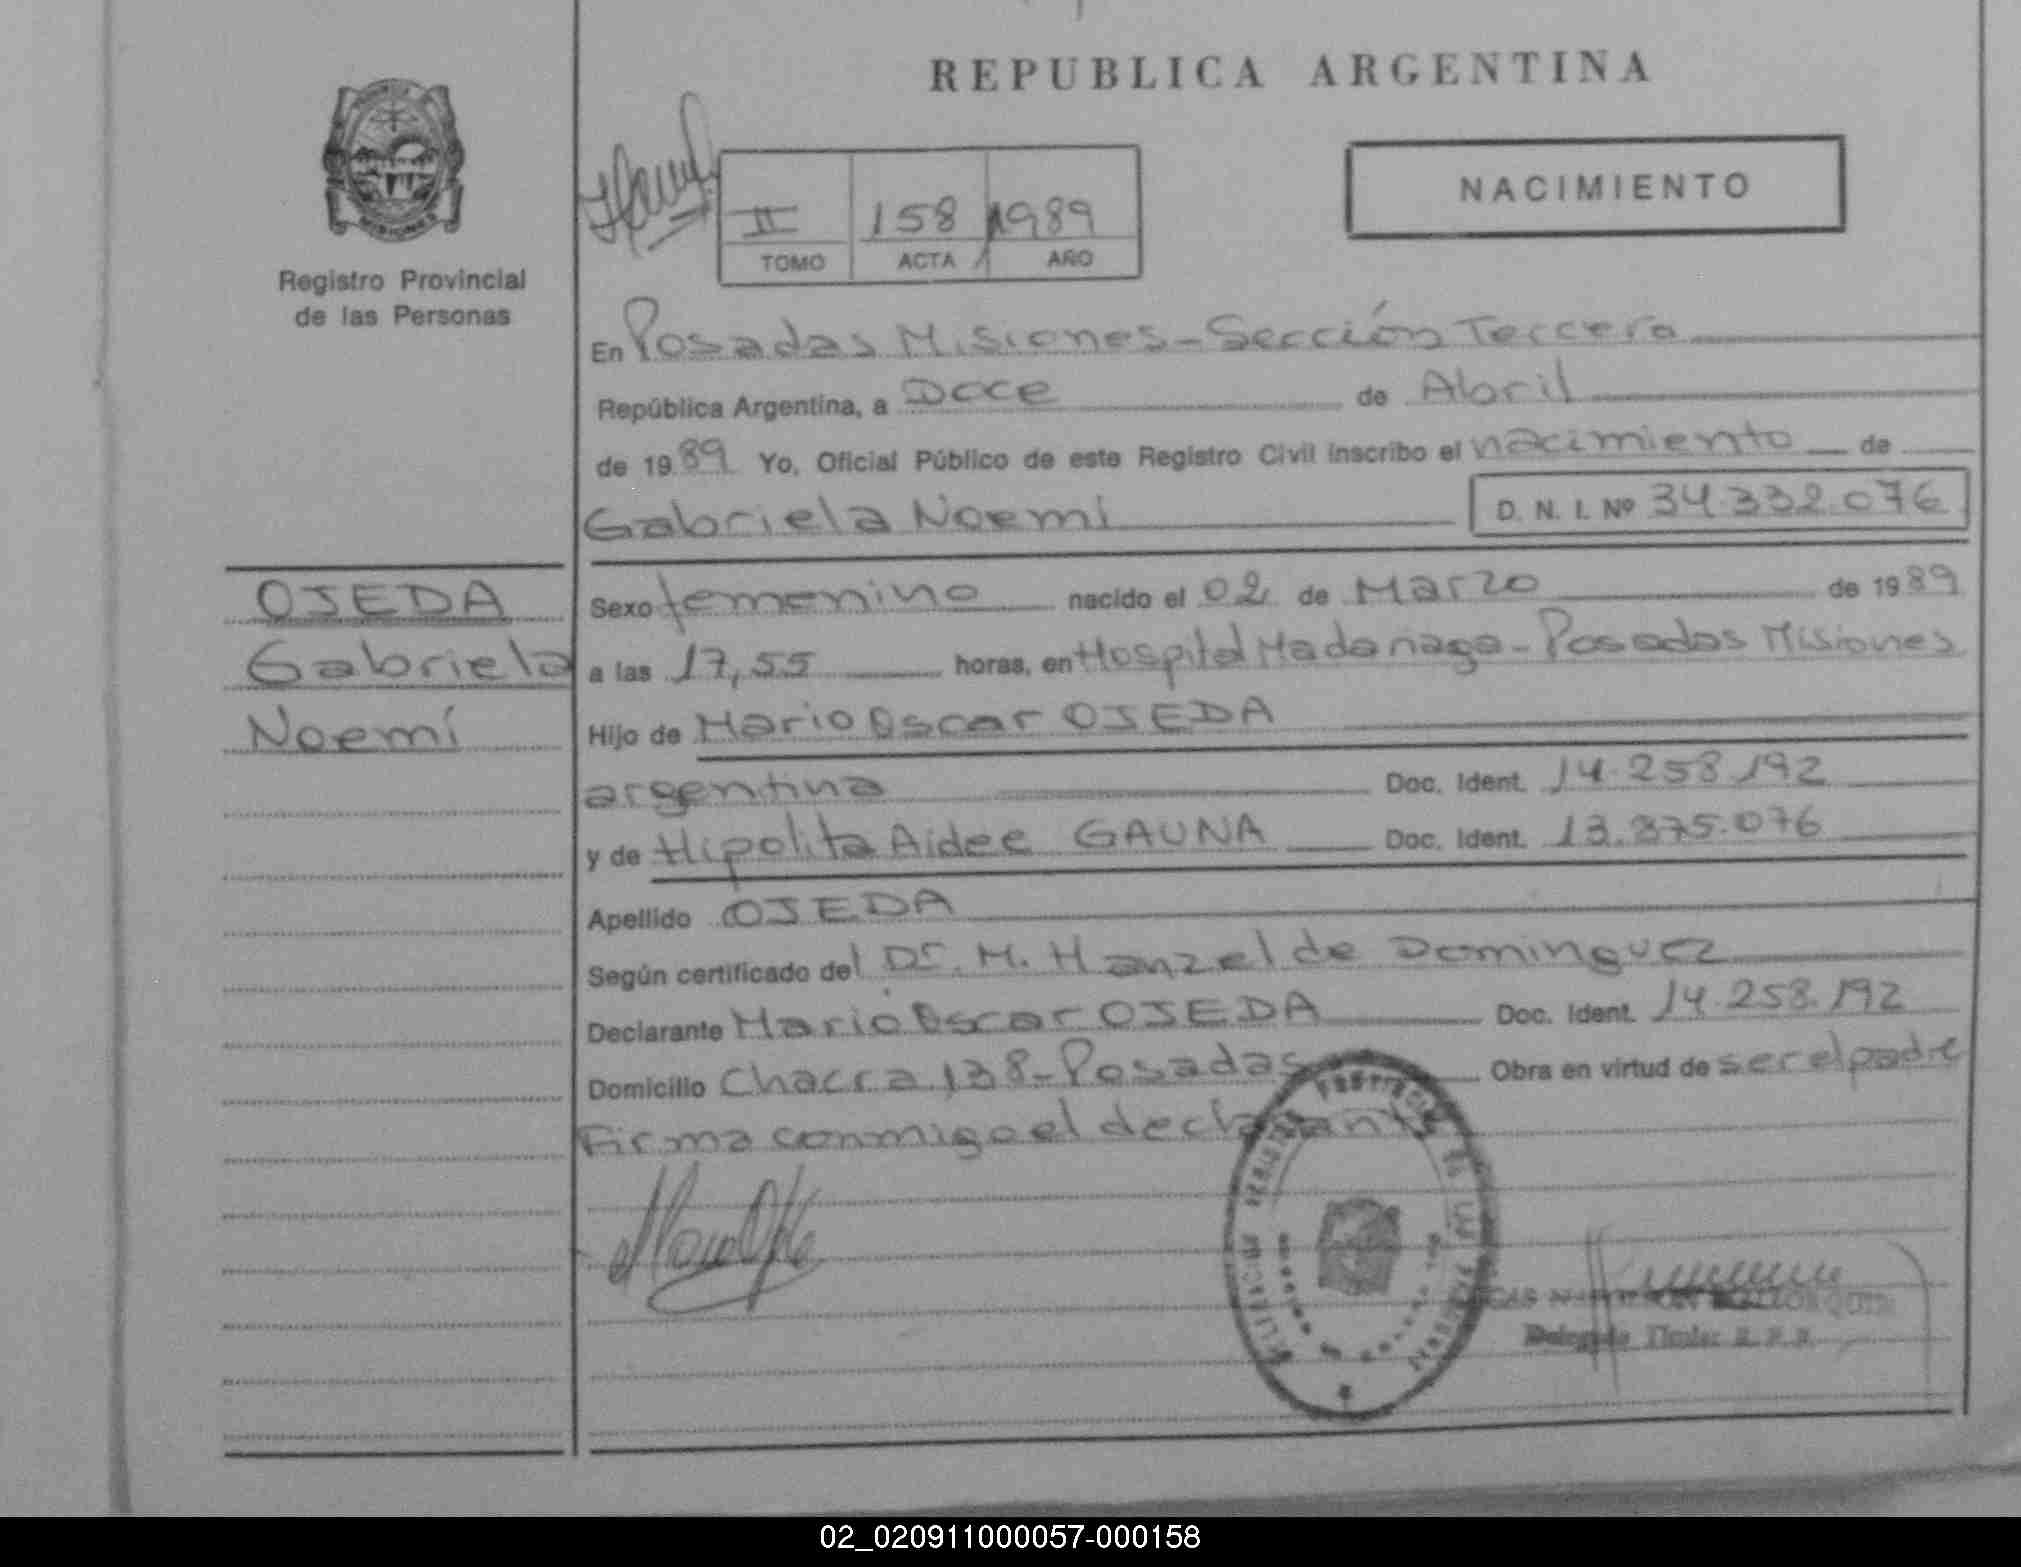 REPUBLICA ARGENTINA
NACIMIENTO
II 158 1989
TOMO ACTA AÑO
Registro Provincial
de las Personas
En Posadas Misiones - Sección Tercera
República Argentina, a Doce de Abril
de 1989 Yo, Oficial Público de este Registro Civil inscribo el nacimiento de
Gabriela Noemí D. N. I. Nº 34.332.076
OJEDA
Gabriela
Noemí
Sexo femenino nacido el 02 de Marzo de 1989
a las 17,55 horas, en Hospital Madariaga - Posadas Misiones
Hijo de Mario Oscar OJEDA
argentina Doc. Ident. 14.258.192
y de Hipolita Aidee GAUNA Doc. Ident. 13.375.076
Apellido OJEDA
Según certificado del Dr. M. Hanzel de Dominguez
Declarante Mario Oscar OJEDA Doc. Ident. 14.258.192
Domicilio Chacra 138 - Posadas Obra en virtud de ser el padre
Firma conmigo el declarante
Delegado Titular R. P. P.
02_020911000057-000158